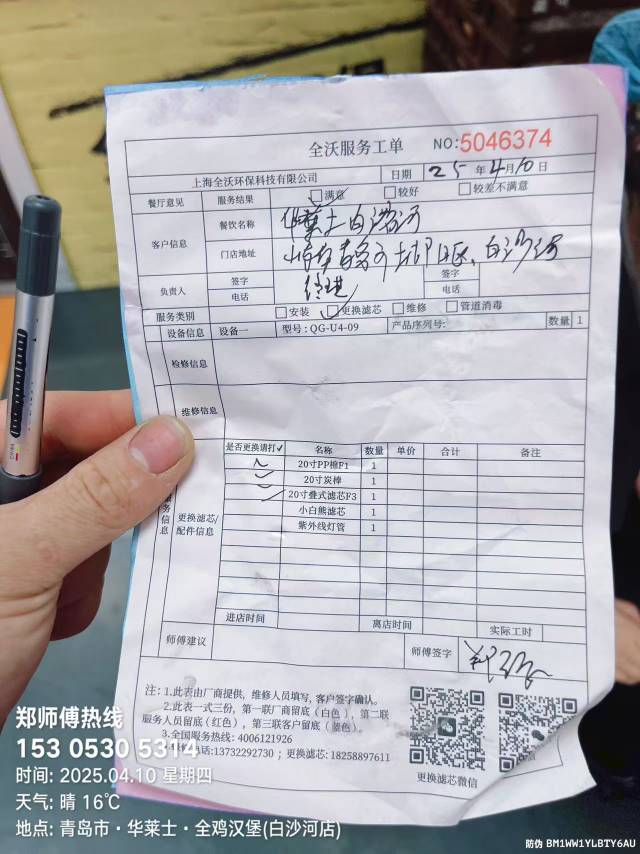 全沃服务工单 NO:5046374
上海全沃环保科技有限公司 日期 25 年 4 月 10 日
餐厅意见 服务结果 满意 较好 较差不满意
客户信息 餐饮名称 华莱士白沙河
门店地址 城阳区、白沙河
负责人 签字 签字
电话 电话
服务类别 安装 更换滤芯 维修 管道消毒
设备信息 设备一 型号:QG-U4-09 产品序列号: 数量 1
检修信息
维修信息
务信息 更换滤芯/配件信息
是否更换请打✓ 名称 数量 单价 合计 备注
✓ 20寸PP棉F1 1
✓ 20寸炭棒 1
✓ 20寸叠式滤芯F3 1
小白熊滤芯 1
紫外线灯管 1
进店时间 离店时间 实际工时
师傅建议 师傅签字
注:1.此表由厂商提供,维修人员填写,客户签字确认。
2.此表一式三份,第一联厂商留底(白色),第二联
服务人员留底(红色),第三联客户留底(蓝色)。
3.全国服务热线:4006121926
电话:13732292730;更换滤芯:18258897611
更换滤芯微信
郑师傅热线
153 0530 5314
时间: 2025.04.10 星期四
天气: 晴 16℃
地点: 青岛市·华莱士·全鸡汉堡(白沙河店)
防伪 BM1WW1YLBTY6AU